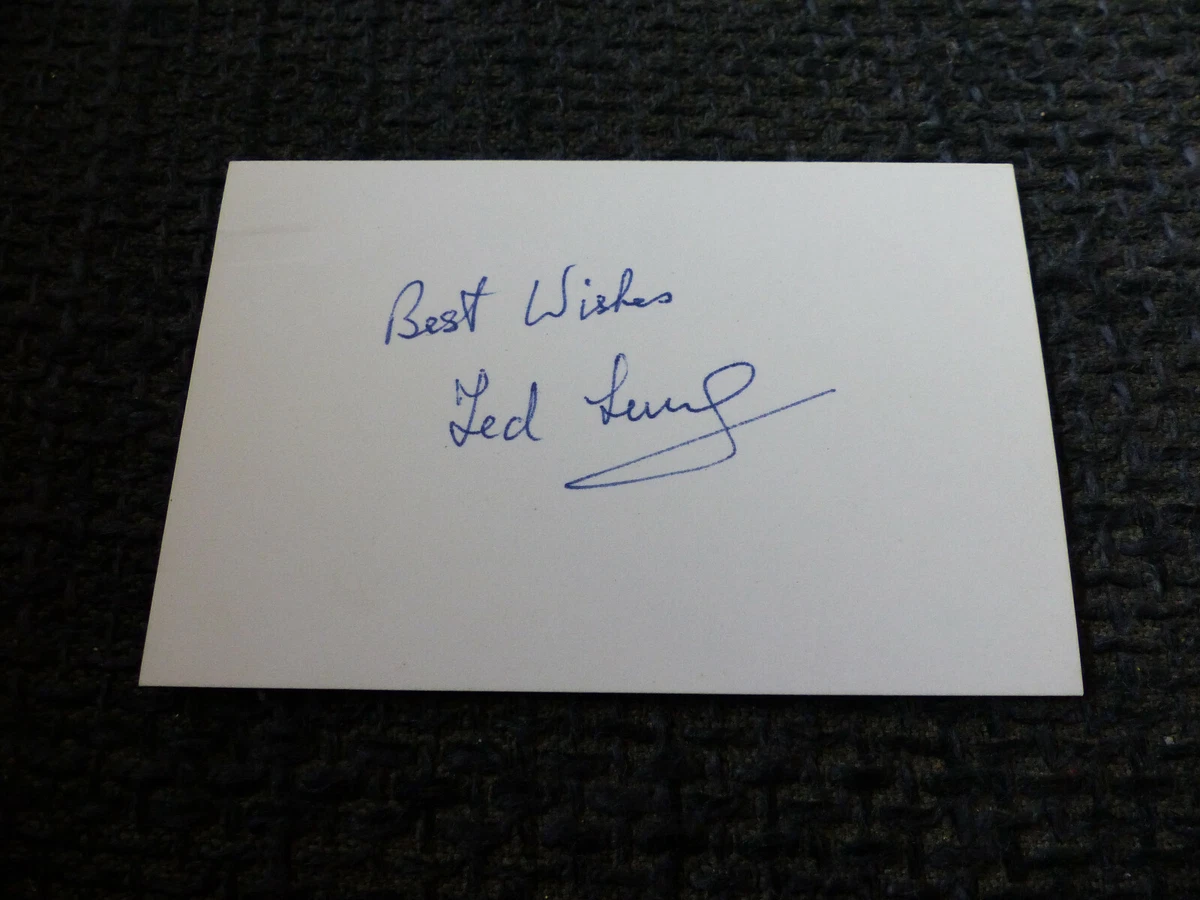 Best Wishes
Ted